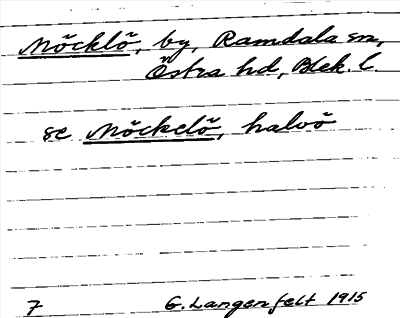 Möcklö, by, Ramdala sn,
Östra hd, Blek. l.
se Möckelö, halvö
7 G. Langenfelt 1915